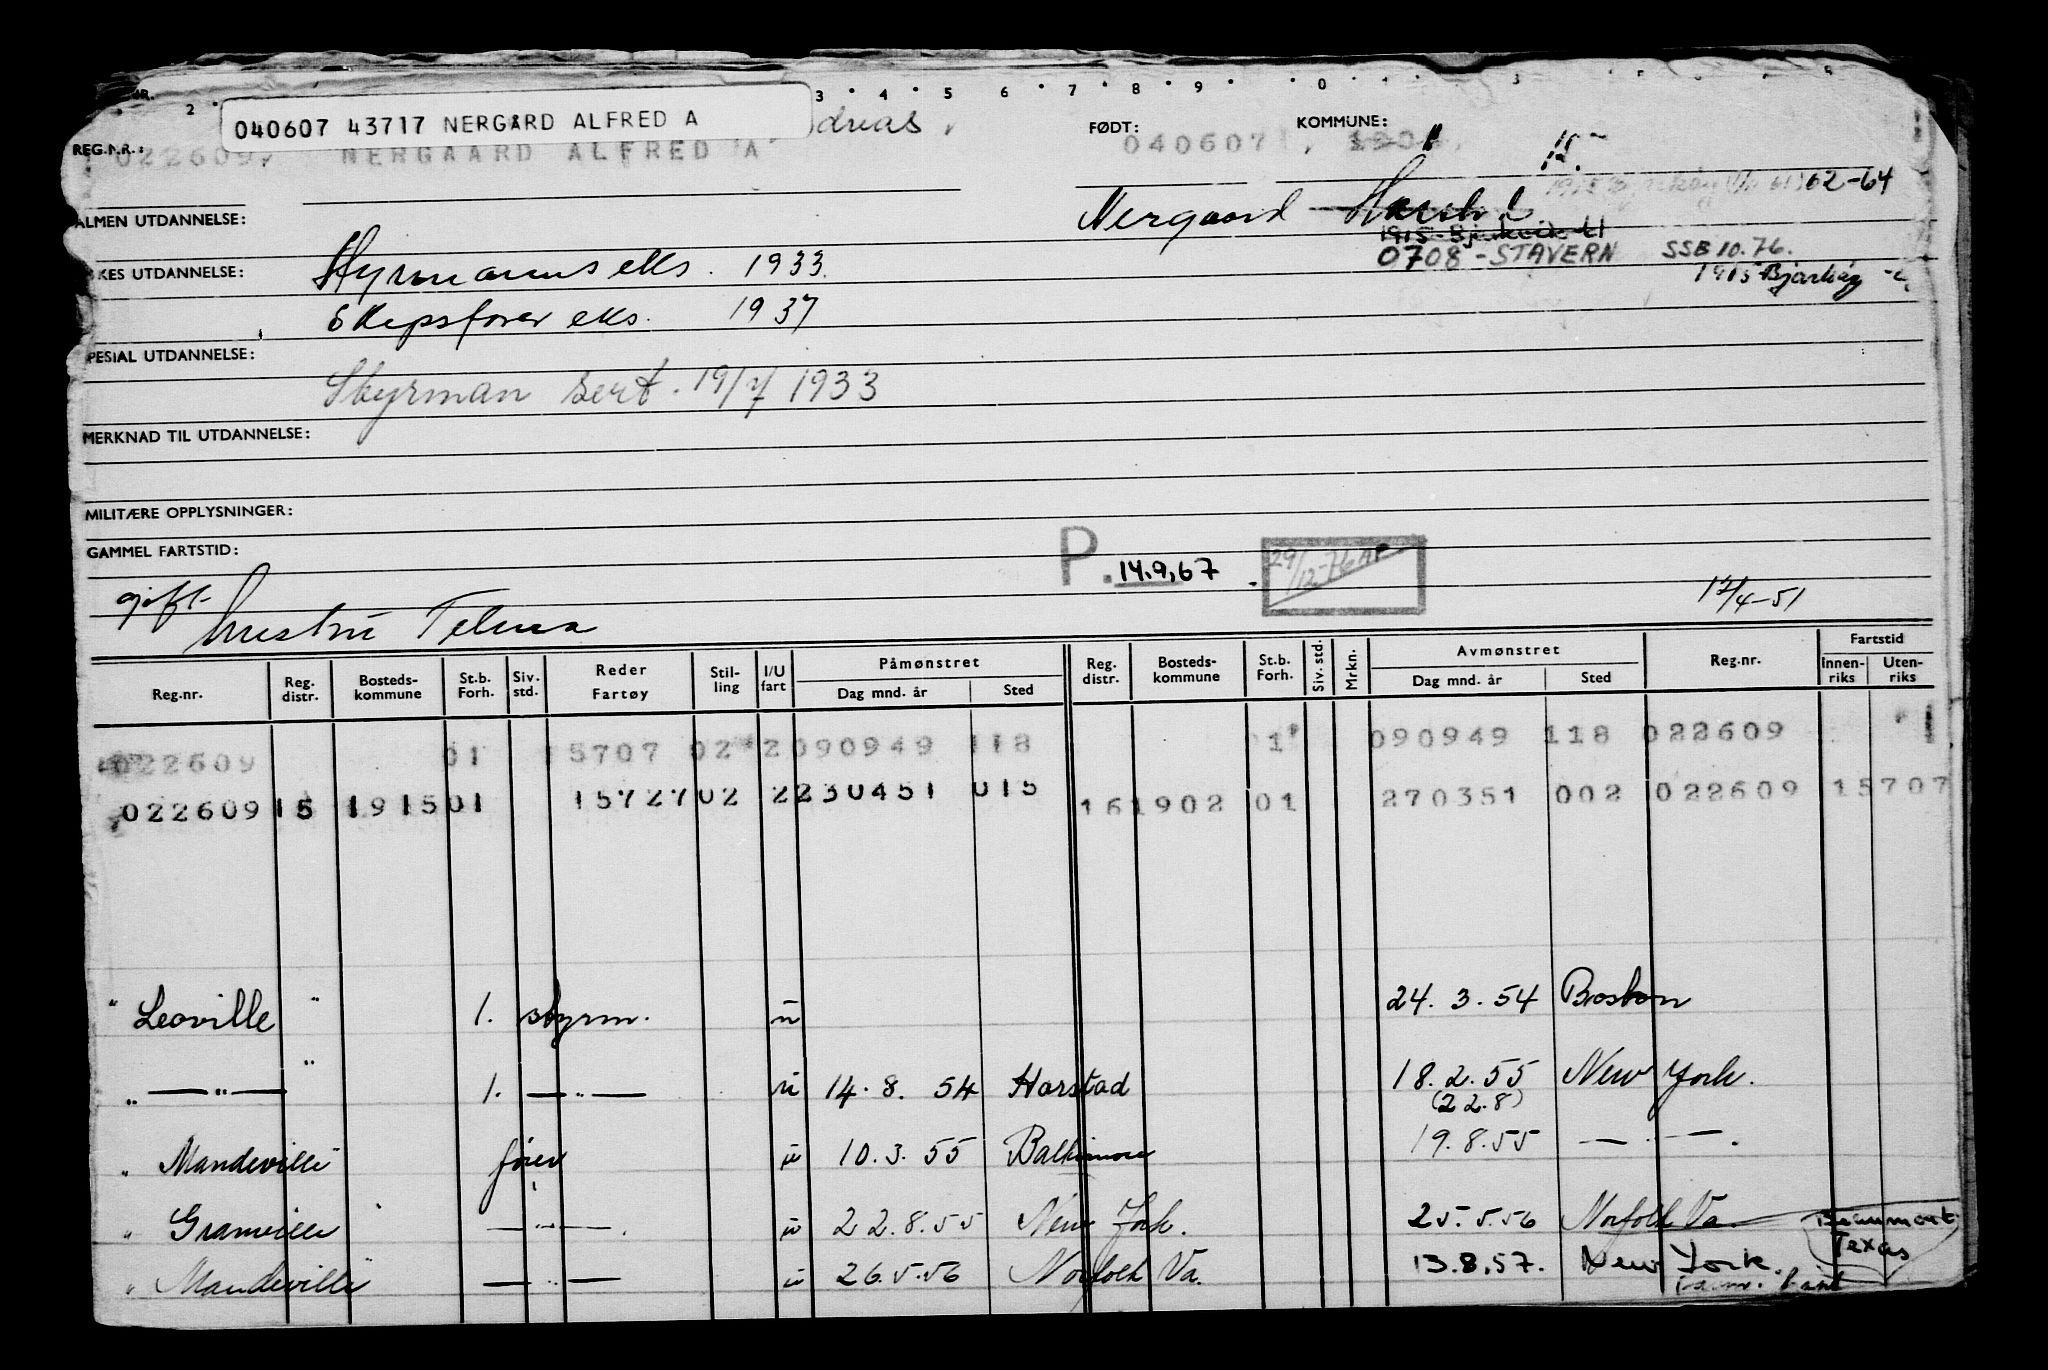 NR. 2 3 4 5 6 7 8 9 0 1 3 5
040607 43717 NERGÅRD ALFRED A
dreas
REG.N.R.: 022609 NERGAARD ALFRED A FØDT: 040607 KOMMUNE:
62-64
ALMEN UTDANNELSE: Nergaard
0708 - STAVERN SSB 10.76.
KES UTDANNELSE: Styrmanns eks. 1933.
1915 Bjarkøy
Skipsfører eks. 1937
PESIAL UTDANNELSE:
Styrman sert. 19/7 1933
MERKNAD TIL UTDANNELSE:
MILITÆRE OPPLYSNINGER:
GAMMEL FARTSTID:
P. 14.9.67 29/12-76 AP
gift 17/4-51
hustru Telma
Reg.nr. Reg. distr. Bosteds-kommune St.b. Forh. Siv. std. Reder Fartøy Stil-ling I/U fart Påmønstret Dag mnd. år Sted Reg. distr. Bosteds-kommune St.b. Forh. Siv. std. Mrkn. Avmønstret Dag mnd. år Sted Reg.nr. Fartstid Innen-riks Uten-riks
022609 01 5707 02 2 090949 118 01 090949 118 022609 1
022609 15 1915 01 15727 02 2 230451 015 16 1902 01 270351 002 022609 15707
" Leoville " 1. styrm. u 24. 3. 54 Boston
" — " — " 1. — " — u 14. 8. 54 Harstad 18. 2. 55 New York.
(22.8)
" Mandeville fører u 10. 3. 55 Baltimore 19. 8. 55 — " — .
" Granville — " — u 22. 8. 55 New York. 25. 5. 56 Norfolk Va.
Beaumont Texas
" Mandeville — " — u 26. 5. 56 Norfolk Va. 13.8.57. New York.